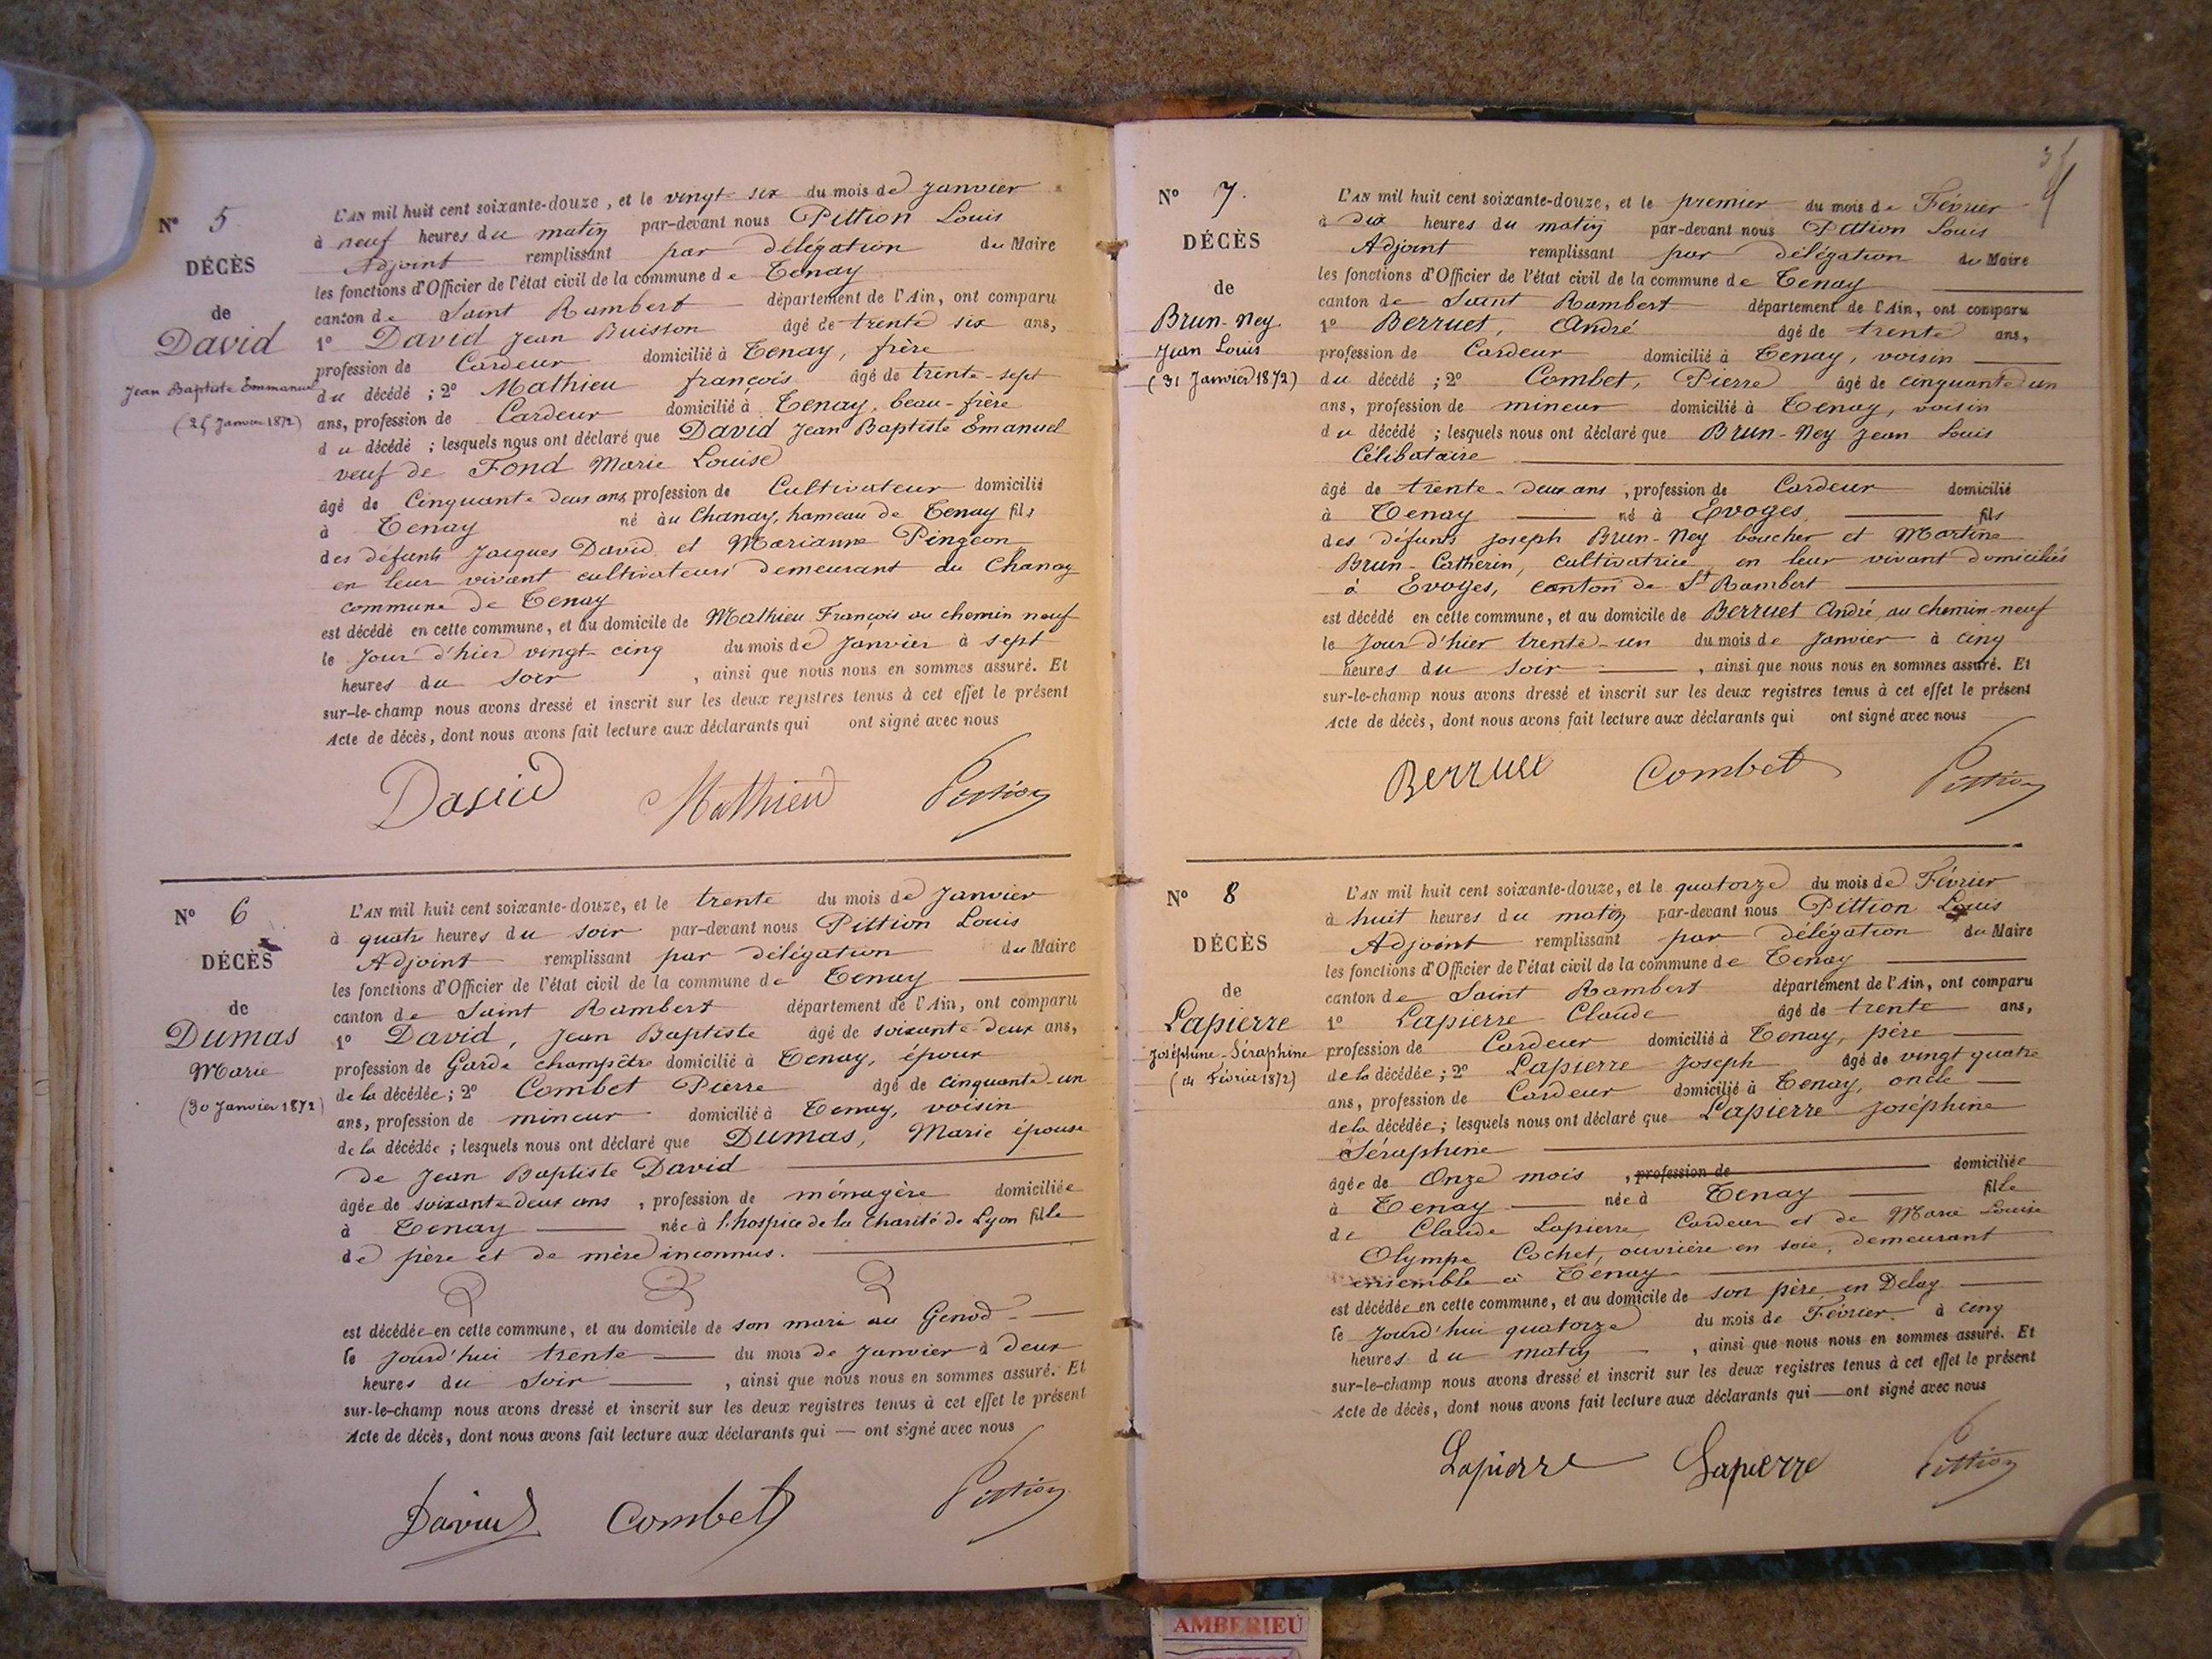 N° 5
DÉCÈS
de
David
Jean Baptiste Emmanuel
(25 Janvier 1872)
L'AN mil huit cent soixante-douze, et le vingt-six du mois de Janvier
à neuf heures du matin par-devant nous Pittion Louis
Adjoint remplissant par délégation du Maire
les fonctions d'Officier de l'état civil de la commune de Tenay
canton de Saint Rambert département de l'Ain, ont comparu
1° David Jean Buisson âgé de trente six ans,
profession de Cardeur domicilié à Tenay, frère
du décédé ; 2° Mathieu françois âgé de trente-sept
ans, profession de Cardeur domicilié à Tenay, beau-frère
du décédé ; lesquels nous ont déclaré que David Jean Baptiste Emanuel
veuf de Fond Marie Louise
âgé de Cinquante deux ans, profession de Cultivateur domicilié
à Tenay né au Chanay, hameau de Tenay fils
des défunts Jacques David et Marianne Pingeon
en leur vivant cultivateurs demeurant au Chanay
commune de Tenay
est décédé en cette commune, et au domicile de Mathieu François au chemin neuf
le jour d'hier vingt-cinq du mois de Janvier à sept
heures du soir , ainsi que nous nous en sommes assuré. Et
sur-le-champ nous avons dressé et inscrit sur les deux registres tenus à cet effet le présent
Acte de décès, dont nous avons fait lecture aux déclarants qui ont signé avec nous
David Mathieu Pittion
N° 6
DÉCÈS
de
Dumas
Marie
(30 Janvier 1872)
L'AN mil huit cent soixante-douze, et le trente du mois de Janvier
à quatre heures du soir par-devant nous Pittion Louis
Adjoint remplissant par délégation du Maire
les fonctions d'Officier de l'état civil de la commune de Tenay
canton de Saint Rambert département de l'Ain, ont comparu
1° David, Jean Baptiste âgé de soixante-deux ans,
profession de Garde champêtre domicilié à Tenay, époux
de la décédée ; 2° Combet Pierre âgé de cinquante-un
ans, profession de mineur domicilié à Tenay, voisin
de la décédée ; lesquels nous ont déclaré que Dumas, Marie épouse
de Jean Baptiste David
âgée de soixante deux ans , profession de ménagère domiciliée
à Tenay née à l'hospice de la Charité de Lyon fille
de père et de mère inconnus.
est décédée en cette commune, et au domicile de son mari au Genod
le jourd'hui trente du mois de Janvier à deux
heures du soir , ainsi que nous nous en sommes assuré. Et
sur-le-champ nous avons dressé et inscrit sur les deux registres tenus à cet effet le présent
Acte de décès, dont nous avons fait lecture aux déclarants qui — ont signé avec nous
David Combet Pittion
N° 7.
DÉCÈS
de
Brun-Ney
Jean Louis
(31 Janvier 1872)
L'AN mil huit cent soixante-douze, et le premier du mois de Février
à dix heures du matin par-devant nous Pittion Louis
Adjoint remplissant par délégation du Maire
les fonctions d'Officier de l'état civil de la commune de Tenay
canton de Saint Rambert département de l'Ain, ont comparu
1° Berruet, André âgé de trente ans,
profession de Cardeur domicilié à Tenay, voisin
du décédé ; 2° Combet, Pierre âgé de cinquante un
ans, profession de mineur domicilié à Tenay, voisin
du décédé ; lesquels nous ont déclaré que Brun-Ney Jean Louis
Célibataire
âgé de trente-deux ans , profession de Cardeur domicilié
à Tenay né à Evoges fils
des défunts Joseph Brun-Ney boucher et Martine
Brun-Catherin, cultivatrice, en leur vivant domiciliés
à Evoges, canton de St Rambert
est décédé en cette commune, et au domicile de Berruet André, au chemin-neuf
le jour d'hier trente-un du mois de Janvier à cinq
heures du soir , ainsi que nous nous en sommes assuré. Et
sur-le-champ nous avons dressé et inscrit sur les deux registres tenus à cet effet le présent
Acte de décès, dont nous avons fait lecture aux déclarants qui ont signé avec nous
Berruet Combet Pittion
N° 8
DÉCÈS
de
Lapierre
Joséphine-Séraphine
(14 Février 1872)
L'AN mil huit cent soixante-douze, et le quatorze du mois de Février
à huit heures du matin par-devant nous Pittion Louis
Adjoint remplissant par délégation du Maire
les fonctions d'Officier de l'état civil de la commune de Tenay
canton de Saint Rambert département de l'Ain, ont comparu
1° Lapierre Claude âgé de trente ans,
profession de Cardeur domicilié à Tenay, père
de la décédée ; 2° Lapierre Joseph âgé de vingt quatre
ans, profession de Cardeur domicilié à Tenay, oncle
de la décédée ; lesquels nous ont déclaré que Lapierre Joséphine
Séraphine
âgée de Onze mois , profession de domiciliée
à Tenay née à Tenay fille
de Claude Lapierre, Cardeur et de Marie Louise
Olympe Cochet, ouvrière en soie, demeurant
ensemble à Tenay
est décédée en cette commune, et au domicile de son père en Delay
le jourd'hui quatorze du mois de Février à cinq
heures du matin , ainsi que nous nous en sommes assuré. Et
sur-le-champ nous avons dressé et inscrit sur les deux registres tenus à cet effet le présent
Acte de décès, dont nous avons fait lecture aux déclarants qui — ont signé avec nous
Lapierre Lapierre Pittion
AMBERIEU